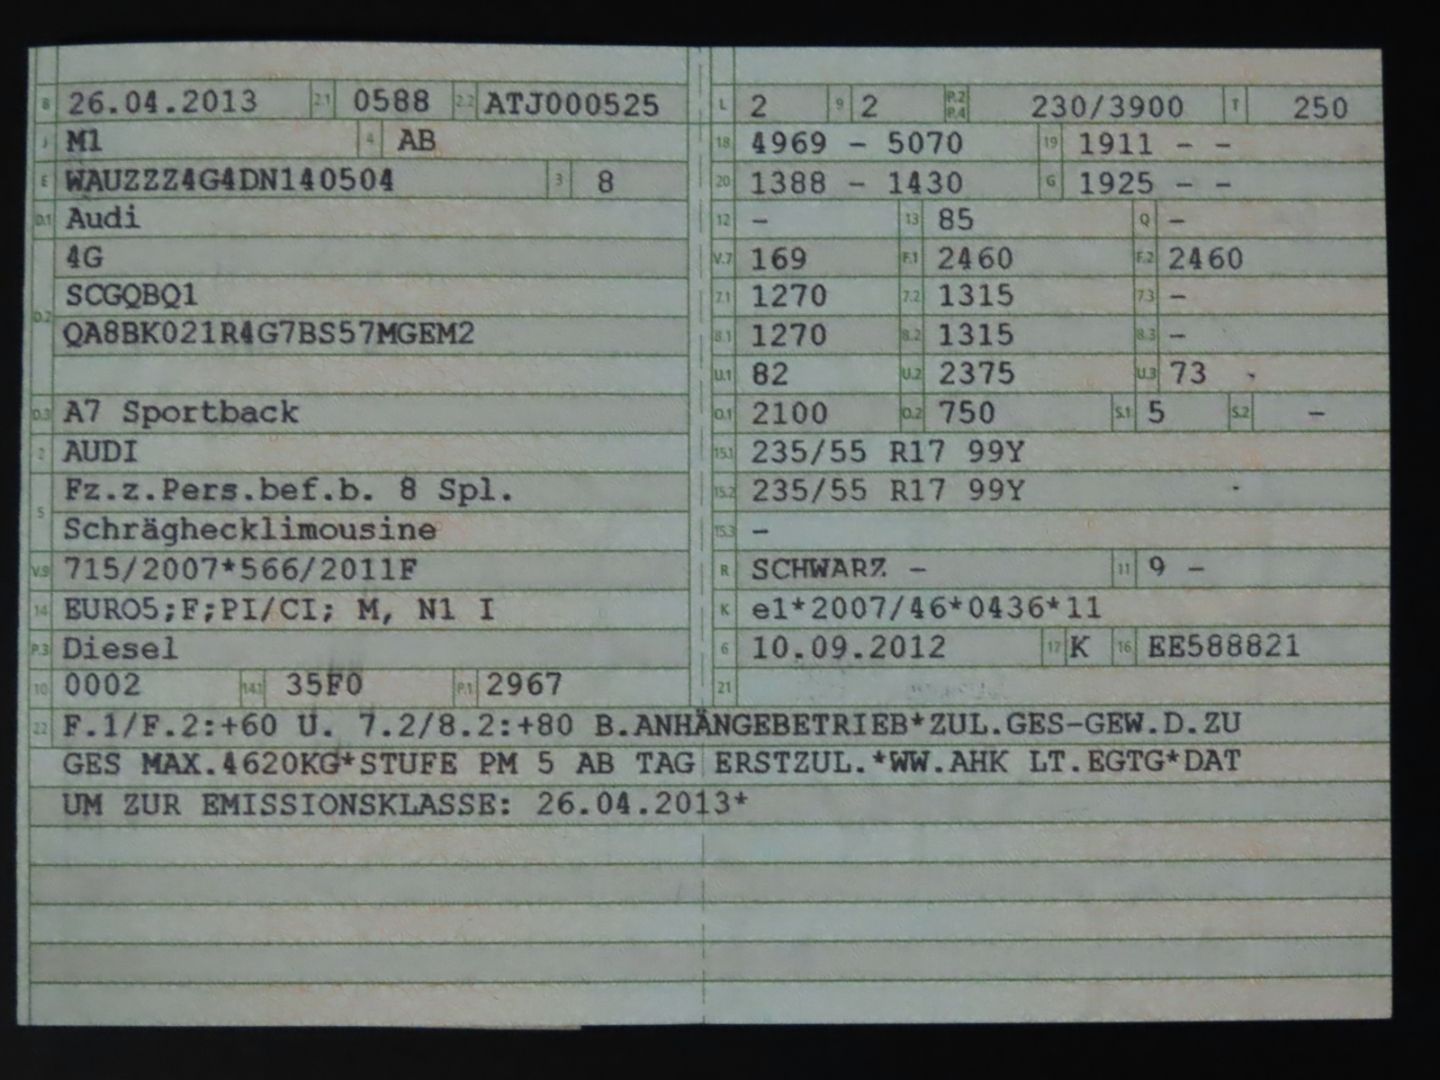 B 26.04.2013 2.1 0588 2.2 ATJ000525
J M1 4 AB
E WAUZZZ4G4DN140504 3 8
D.1 Audi
D.2 4G
SCGQBQ1
QA8BK021R4G7BS57MGEM2
D.3 A7 Sportback
2 AUDI
5 Fz.z.Pers.bef.b. 8 Spl.
Schräghecklimousine
V.9 715/2007*566/2011F
14 EURO5;F;PI/CI; M, N1 I
P.3 Diesel
10 0002 14.1 35F0 P.1 2967
L 2 9 2 P.2 P.4 230/3900 T 250
18 4969 - 5070 19 1911 - -
20 1388 - 1430 G 1925 - -
12 - 13 85 Q -
V.7 169 F.1 2460 F.2 2460
7.1 1270 7.2 1315 7.3 -
8.1 1270 8.2 1315 8.3 -
U.1 82 U.2 2375 U.3 73
O.1 2100 O.2 750 S.1 5 S.2 -
15.1 235/55 R17 99Y
15.2 235/55 R17 99Y
15.3 -
R SCHWARZ - 11 9 -
K e1*2007/46*0436*11
6 10.09.2012 17 K 16 EE588821
21
22 F.1/F.2:+60 U. 7.2/8.2:+80 B.ANHÄNGEBETRIEB*ZUL.GES-GEW.D.ZU
GES MAX.4620KG*STUFE PM 5 AB TAG ERSTZUL.*WW.AHK LT.EGTG*DAT
UM ZUR EMISSIONSKLASSE: 26.04.2013*